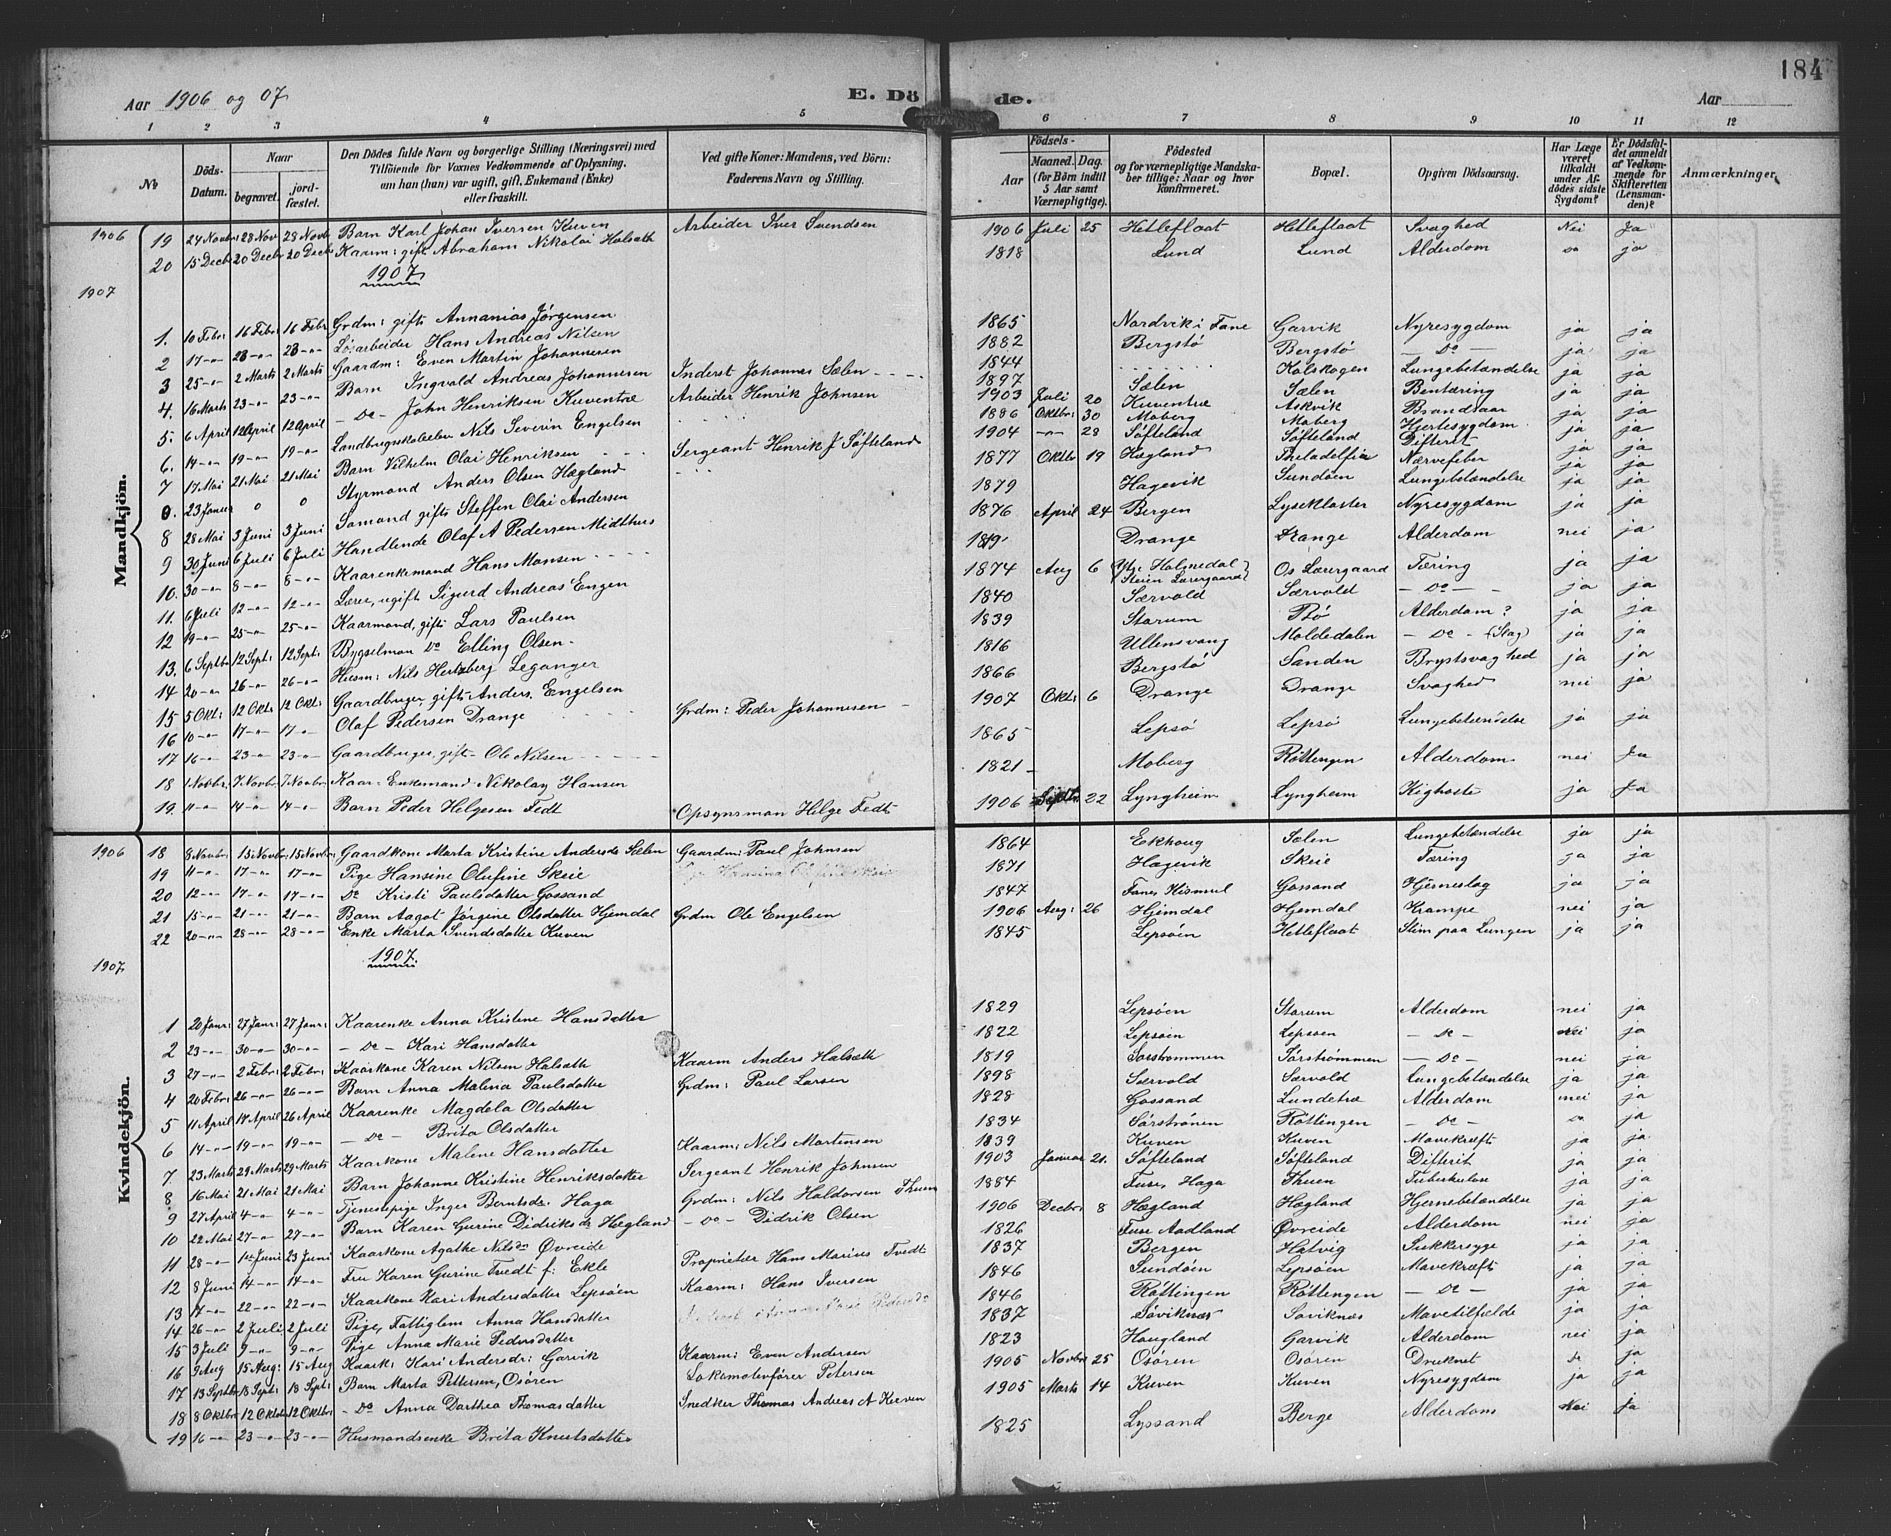 184
Aar 1906 og 07
E. Dö
de.
Aar
1 2 3 4 5 6 7 8 9 10 11 12
No
Döds-Datum.
Naar
begravet.
jordfæstet.
Den Dödes fulde Navn og borgerlige Stilling (Næringsvei) med
Tilföiende for Voxnes Vedkommende af Oplysning,
um han (hun) var ugift, gift, Enkemand (Enke)
eller fraskilt.
Ved gifte Koner: Mandens, ved Börn:
Faderens Navn og Stilling.
Födsels-
Aar
Maaned. Dag.
(for Börn indtil
5 Aar samt
Værnepligtige).
Födested
og for værnepligtige Mandskaber tillige: Naar og hvor
konfirmeret.
Bopæl.
Opgiven Dödsaarsag.
Har Læge
været
tilkaldt
under Afdödes sidste
Sygdom?
Er Dödsfaldet anmeldt
af Vedkommende for
Skifteretten
(Lensmanden)?
Anmærkninger.
Mandkjön.
1906
19 24 Novbr: 28 Nov 28 Novb Barn Karl Johan Iversen Kuven Arbeider Iver Svendsen 1906 Juli 25 Hetleflaat Hetleflaat Svaghed Nei Ja
20 15 Decb 20 Decbr 20 Decb Kaarm: gift Abraham Nikolai Halsæth 1818 Lund Lund Alderdom Do ja
1907
1907
1. 10 Febr: 16 Febr: 16 Febr Grdm: gift Annanias Jørgensen 1865 Nordvik i Fane Garvik Nyresygdom ja ja
2 17 -"- 23 -"- 23 -"- Løsarbeider Hans Andreas Nilsen 1882 Bergstø Bergstø - Do - ja ja
3 25 -"- 2 Marts 2 Marts Gaardm: Even Martin Johannesen 1844 Kolskogen Lungebetændelse ja ja
4. 16 Marts 23 -"- 23 -"- Barn Ingvald Andreas Johannesen Inderst Johannes Sælen 1897 Sælen Sælen Bentæring ja ja
5. 6 April 12 April 12 April - Do - John Henriksen Kuventræ Arbeider Henrik Johnsen 1903 Juli 20 Kuventræ Askvik Brandsaar ja ja
6. 14 -"- 19 -"- 19 -"- Landbrugsskoleelev Nils Severin Engelsen 1886 Oktbr: 30 Moberg Moberg Hjertesygdom ja ja
7 17 Mai 21 Mai 21 Mai Barn Vilhelm Olai Henriksen Sergeant Henrik J Søfteland 1904 -"- 28 Søfteland Søfteland Difterit ja ja
0. 23 Januar 0 0 Styrmand Anders Olsen Hægland 1877 Oktbr 19 Hægland Philadelfia Nervefeber ja ja
8 28 Mai 3 Juni 3 Juni Sømand gift Steffen Olai Andersen 1879 Hagevik Sundøen Lungebetændelse ja ja
9 30 Juni 6 Juli 6 Juli Handlende Olaf A Pedersen Midthus 1876 April 24 Bergen Lysekloster Nyresygdom ja ja
10. 30 -"- 8 -"- 8 -"- Kaarenkemand Hans Monsen 1819 Drange Drange Alderdom nei ja
11. 6 Juli 12 -"- 12 -"- Lærer, ugift Sigurd Andreas Engen 1874 Aug 6 Os Lærergaard Tæring ja ja
12 19 -"- 25 -"- 25 -"- Kaarmand, gift Lars Paulsen 1840 Særvold Særvold - Do - ja ja
13. 6 Septbr 12 Sept: 12 Sept: Bygselman Do Elling Olsen 1839 Storum Bø Alderdom? ja ja
14 20 -"- 26 -"- 26 -"- Husm: Nils Hertzberg Leganger 1816 Ullensvang Moldedalen - Do - (Slag) ja ja
15 5 Okt: 12 Okt: 12 Okt: Gaardbruger gift Anders Engelsen 1866 Bergstø Sanden Brystsvaghed ja ja
16 10 -"- 17 -"- 17 -"- Olaf Pedersen Drange Grdm: Peder Johannesen 1907 Okt: 6 Drange Drange Svaghed nei ja
17 16 -"- 23 -"- 23 -"- Gaardbruger, gift Ole Nilsen 1865 Lepsø Lepsø Lungebetændelse ja ja
18 1 Novbr. 7 Novbr 7 Novbr Kaar-Enkemand Nikolay Hansen 1821 Moberg Røttingen Alderdom nei Ja
19. 11 -"- 14 -"- 14 -"- Barn Peder Helgesen Tedt Opsynsman Helge Tedt 1906 Septbr 22 Lyngheim Lyngheim Kighoste ja Ja
Kvindekjön.
1906
18 8 Novbr: 15 Novbr 15 Novbr Gaardkone Marta Kristine Andersd: Sælen Gaardm: Paul Johnsen 1864 Ekhoug Sælen Lungebetændelse ja ja
19 11 -"- 17 -"- 17 -"- Pige Hansine Olufine Skeie 1871 Hagevik Skeie Tæring ja ja
20 12 -"- 17 -"- 17 -"- Do Kristi Paulsdatter Gossand 1847 Fanes Kismul Gossand Hjerneslag ja ja
21 15 -"- 21 -"- 21 -"- Barn Aagot Jørgine Olsdatter Hjemdal Grdm Ole Engelsen 1906 Aug: 26 Hjemdal Hjemdal Krampe nei ja
22 20 -"- 28 -"- 28 -"- Enke Marta Svendsdatter Kuven 1845 Lepsøen Hetleflaat Slim paa Lungen ja ja
1907
1907
1 20 Janr: 27 Janr: 27 Janr: Kaarenke Anna Kristine Hansdatter 1829 Lepsøen Storum Alderdom nei ja
2 23 -"- 30 -"- 30 -"- - Do - Kari Hansdatter 1822 Lepsøen Lepsøen - Do - nei ja
3 27 -"- 2 Febr: 2 Febr: Kaarkone Karen Nilsen Halsæth Kaarm Anders Halsæth 1819 Sørstrømmen Sørstrømmen - Do - nei ja
4 20 Febr 26 -"- 26 -"- Barn Anna Malina Paulsdatter Grdm: Paul Larsen 1898 Særvold Særvold Lungebetændelse ja ja
5 11 April 17 April 26 April Kaarenke Magdela Olsdatter 1828 Gossand Lundetræ Alderdom nei ja
6 14 -"- 19 -"- 19 -"- - Do - Brita Olsdatter 1834 Sørstrønen Røttingen - Do - Do ja
7 23 Marts 29 Marts 29 Marts Kaarkone Malene Hansdatter Kaarm: Nils Mortensen 1839 Kuven Kuven Mavekræft ja ja
8. 16 Mai 21 Mai 21 Mai Barn Johanne Kristine Henriksdatter Sergeant Henrik Johnsen 1903 Januar 21. Søfteland Søfteland Difterit ja ja
9 27 April 4 -"- 4 -"- Tjenestepige Inger Berntsdr Haga Grdm: Nils Haldorsen Thuen 1884 Fuse, Haga Thuen Tuberkulose ja ja
10 22 Mai 27 -"- 27 -"- Barn Karen Gurine Didriksdr Hægland - Do - Didrik Olsen 1906 Decbr 8 Hægland Hægland Hjernebetændelse ja ja
11 28 -"- 1ste Juni 23 Juni Kaarkone Agathe Nilsdr Øvreide 1826 Fuse Aadland Øvreide Alderdom nei ja
12 8 Juni 14 -"- 14 -"- Fru Karen Gurine Tvedt f: Ekle Proprietær Hans Marius Tvedt 1837 Bergen Hatvig Sukkersyge ja ja
13 17 -"- 22 -"- 22 -"- Kaarkone Kari Andersdatter Lepsøen Kaarm: Hans Iversen 1846 Sundøen Lepsøen Mavekræft ja ja
14 26 -"- 2 Juli 2 Juli Pige, Fattiglem Anna Hansdatter 1846 Røttingen Røttingen - Do - ja ja
15 3 Juli 9 -"- 9 -"- Pige Anna Marie Pedersdatter 1837 Søviknæs Søviknæs Mavetilfælde ja ja
16 9 Aug 15 Aug: 15 Aug Kaark: Kari Andersdr: Garvik Kaarm: Even Andersen 1823 Hougland Garvik Alderdom nei ja
17 13 Septbr 18 Sept: 18 Sept: Barn Marta Pettersen, Osøren Lokomotivfører Petersen 1905 Novbr 25 Osøren Osøren Druknet Do ja
18 8 Oktbr 12 Oktbr 12 Oktbr. - Do Anna Dorthea Thomasdatter Snedker Thomas Andreas A Kuven 1905 Marts 14 Kuven Kuven Nyresygdom ja ja
19 16 -"- 23 -"- 23 -"- Husmandsenke Brita Knutsdatter 1825 Lyssand Berge Alderdom Nei Ja